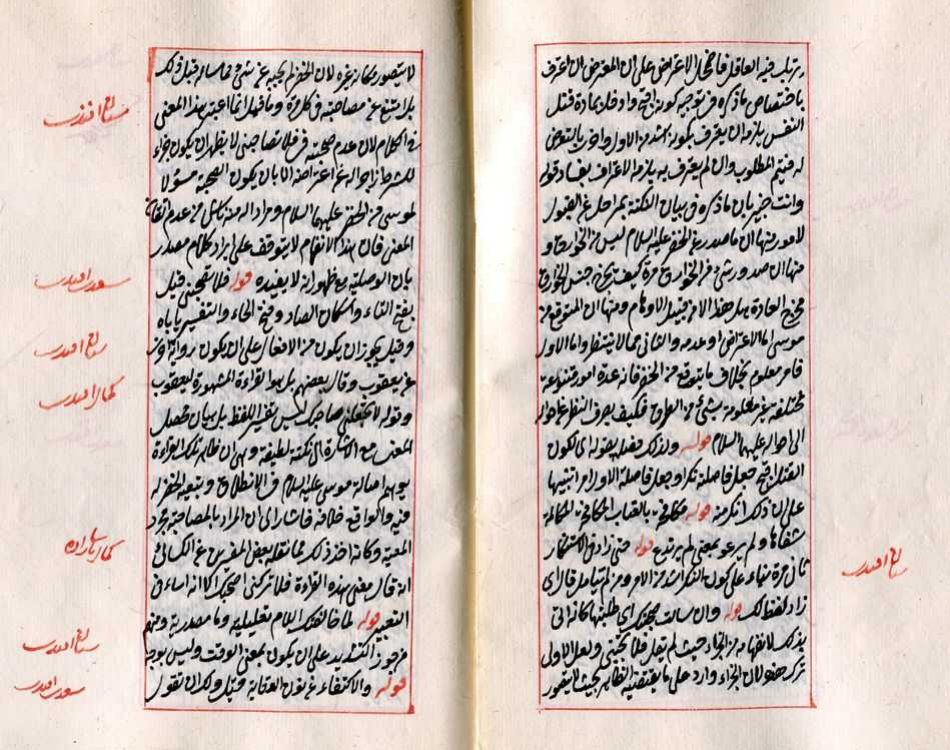 يرتاب فيه العاقل فاضمحل الاعتراض على ان المعترض ان اعترف
باختصاص ما ذكره في توجيه كونه اقبح وادخل بمادة قتل
النفس يلزمه ان يعترف بكونه من الاول واخرى بالتعرض
له فيتم المطلوب وان لم يعترف به يلزمه الاعتراف بفساد قوله
وانت خبير بان ما ذكره في بيان النكتة بمراحل عن القبول
لامور منها ان ما صدر عن الخضر عليه السلام ليس من الخوارق و
منها ان صدور شئ من الخوارق مرة كيف يخرج جنس الخوارق
مخرج العادة بل هذا الامر من قبيل الاوهام ومنها ان المتوقع من
موسى اما الاعتراض او عدمه والثاني مما لا ينتظر واما الاول
فامر معلوم بخلاف ما يتوقع من الخضر فانه عدة امور متنوعة
مختلفة غير معلومة بشئ من الطرق فكيف يصرف النظر عن احواله
الى احواله عليهما السلام قوله ولذلك فصله بقوله اي لكون
القتل اقبح جعل فاصلته نكرا وجعل فاصلة الاول امرا تنبيها
على ان ذلك انكر منه قوله مكافحة المكافحة المكالمة
شفاها ولم يرعو بمعنى لم يرتدع قوله حتى زاد في الاستنكار
ثاني مرة بناء على كون النكر اشد من الامر ومن لم يتامل قال اي
زاد لفظ لك قوله وان سالت صحبتك اي طلبتها كانه اتى
بذلك لانفهامه من الجزاء حيث لم يقل فلا تصحبني ولعل الاولى
ترك هذا لان الجزاء وارد على ما يقتضيه الظاهر بحيث لا يتصور
لا يتصور مكانه غيره لان الخضر لم يجبه عن شئ مما ساله قبل ذلك
بل امتنع عن مصاحبته في كل مرة وما فهمه انما اعتبه بهذا المعنى
في الكلام لان عدم صحبته فلا تصاحبني لا يظهر ان يكون جزاء
للشرط عن اعتراضه الا بان يكون الصحبة مسئولا
لموسى من الخضر عليهما السلام ومراداله منه من عدم اتقانه
المعنى فان هذا الانفهام لا يتوقف على ايراد كلام مصدر
بان الوصلية مع ظهور انه لا يفيده قوله فلا تصحبني قيل
بفتح التاء واسكان الصاد وفتح الحاء والتفسير ياباه
وقيل يجوز ان يكون من الافعال على ان يكون
عن يعقوب وقال بعضهم بل هو القراءة المشهورة ليعقوب
وقوله لا تجعلني صاحبك ليس تفسير اللفظ بل بيان محصل
المعنى مع الاشارة الى نكتة لطيفة وهي ان ظاهر تلك القراءة
يوهم اصالة موسى عليه السلام في الانطلاق وتبعية الخضر له
فيه والواقع خلافه فاشار الى ان المراد بالمصاحبة مجرد
المعية وكانه اخذ ذلك مما نقله بعض المفسرين عن الكسائي
انه قال معنى هذه القراءة فلا تتركني اصحبك الا انه اساء في
التعبير قوله لما خالفتك اللام تعليلية وما مصدرية ومنهم
من جوز التشديد على ان يكون بمعنى الوقت وليس بوجه
قوله والاكتفاء عن نون الوقاية وقيل ولك ان تقول
سعدى افندى
كمال افندى
كمال پاشازاده
سعدى افندى